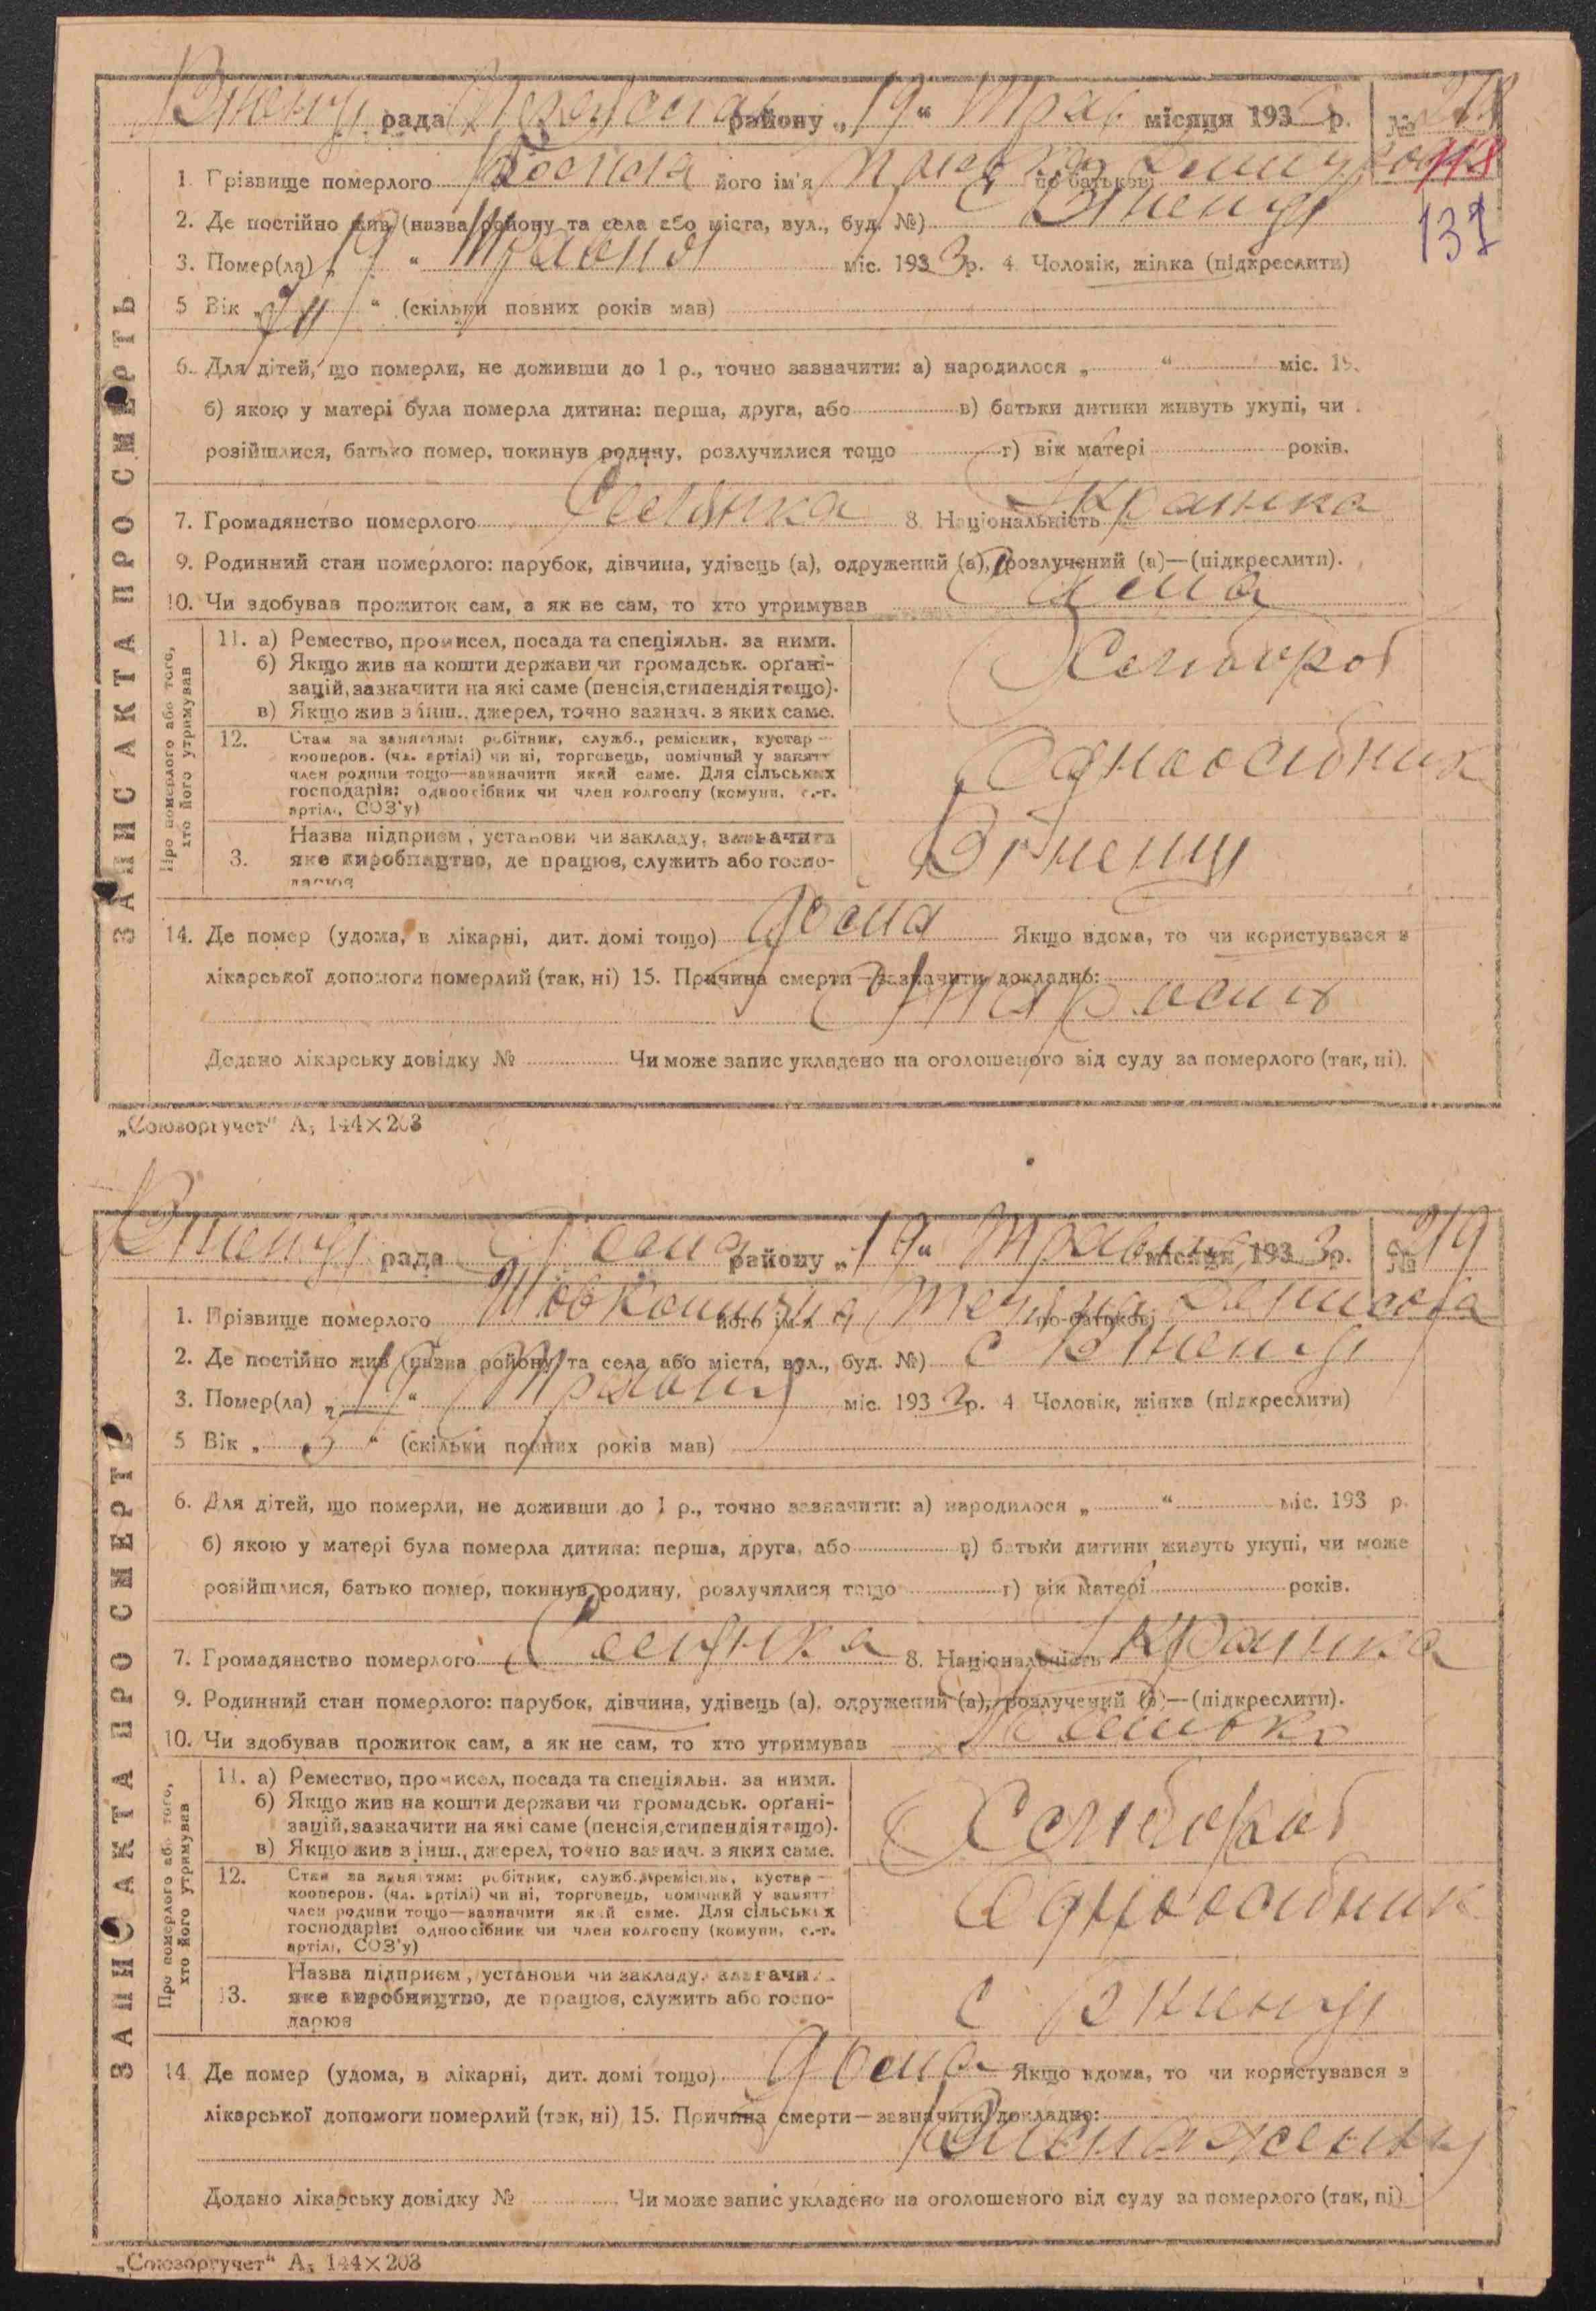 рада району „19“ Трав. місяця 1933 р. №
118
1. Прізвище померлого його ім'я по батькові
137
2. Де постійно жив (назва району та села або міста, вул., буд. №)
3. Помер(ла) „19“ Травня міс. 1933 р. 4 Чоловік, жінка (підкреслити)
5 Вік „ “ (скільки повних років мав)
6. Для дітей, що померли, не доживши до 1 р., точно зазначити: а) народилося „ “ міс. 19
б) якою у матері була померла дитина: перша, друга, або в) батьки дитини живуть укупі, чи
розійшлися, батько помер, покинув родину, розлучилися тощо г) вік матері років.
7. Громадянство померлого Селянка 8. Національність Украинка
9. Родинний стан померлого: парубок, дівчина, удівець (а), одружений (а), розлучений (а)—(підкреслити).
10. Чи здобував прожиток сам, а як не сам, то хто утримував Сама
ЗАПИС АКТА ПРО СМЕРТЬ
Про померлого або того, хто його утримував
11. а) Ремество, промисел, посада та спеціяльн. за ними.
б) Якщо жив на кошти держави чи громадськ. органі-
зацій, зазначити на які саме (пенсія, стипендія тощо).
в) Якщо жив з інш., джерел, точно зазнач. з яких саме.
Хлібороб
12. Стан за заняттям: робітник, служб., ремісник, кустар—
кооперов. (чл. артілі) чи ні, торговець, помічний у занятт
член родини тощо—зазначити який саме. Для сільських
господарів: одноосібник чи член колгоспу (комуни, с.-г.
артілі, СОЗ'у)
Одноосібник
3. Назва підприєм, установи чи закладу, зазначити
яке виробництво, де працює, служить або госпо-
дарює
14. Де помер (удома, в лікарні, дит. домі тощо) Дома Якщо вдома, то чи користувався з
лікарської допомоги померлий (так, ні) 15. Причина смерти—зазначити докладно:
Додано лікарську довідку № Чи може запис укладено на оголошеного від суду за померлого (так, ні).
„Союзоргучет“ А₅ 144×203
рада району „19“ Травня місяця 1933 р. № 219
1. Прізвище померлого його ім'я по батькові
2. Де постійно жив (назва району та села або міста, вул., буд. №) с
3. Помер(ла) „19“ Травня міс. 1933 р. 4 Чоловік, жінка (підкреслити)
5 Вік „ “ (скільки повних років мав)
6. Для дітей, що померли, не доживши до 1 р., точно зазначити: а) народилося „ “ міс. 193 р.
б) якою у матері була померла дитина: перша, друга, або в) батьки дитини живуть укупі, чи може
розійшлися, батько помер, покинув родину, розлучилися тощо г) вік матері років.
7. Громадянство померлого Селянка 8. Національність Украинка
9. Родинний стан померлого: парубок, дівчина, удівець (а), одружений (а), розлучений (а)—(підкреслити).
10. Чи здобував прожиток сам, а як не сам, то хто утримував
ЗАПИС АКТА ПРО СМЕРТЬ
Про померлого або того, хто його утримував
11. а) Ремество, промисел, посада та спеціяльн. за ними.
б) Якщо жив на кошти держави чи громадськ. органі-
зацій, зазначити на які саме (пенсія, стипендія тощо).
в) Якщо жив з інш., джерел, точно зазнач. з яких саме.
Хлібороб
12. Стан за заняттям: робітник, служб., ремісник, кустар—
кооперов. (чл. артілі) чи ні, торговець, помічний у занятт
член родини тощо—зазначити який саме. Для сільських
господарів: одноосібник чи член колгоспу (комуни, с.-г.
артілі, СОЗ'у)
Одноосібник
13. Назва підприєм, установи чи закладу, зазначи
яке виробництво, де працює, служить або госпо-
дарює
с
14 Де помер (удома, в лікарні, дит. домі тощо) Дома Якщо вдома, то чи користувався з
лікарської допомоги померлий (так, ні) 15. Причина смерти—зазначити докладно:
Додано лікарську довідку № Чи може запис укладено на оголошеного від суду за померлого (так, ні)
„Союзоргучет“ А₅ 144×203